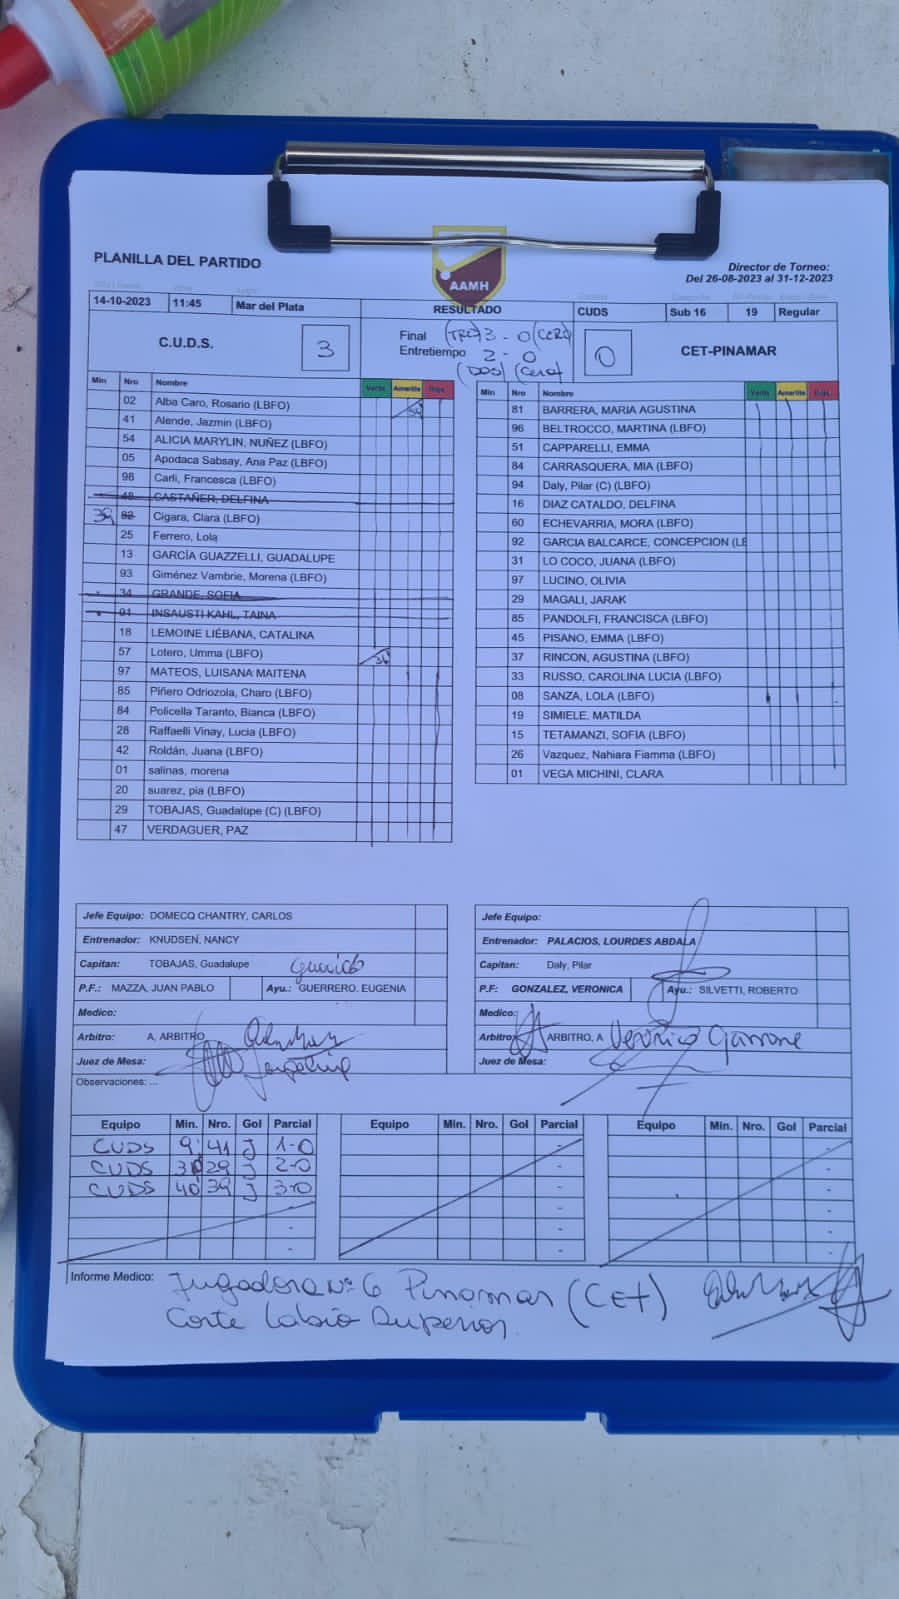 AAMH
PLANILLA DEL PARTIDO
Director de Torneo:
Del 26-08-2023 al 31-12-2023
14-10-2023 11:45 Mar del Plata RESULTADO CUDS Sub 16 19 Regular
C.U.D.S. 3 Final (TRES) 3 - 0 (CERO) 0 CET-PINAMAR
Entretiempo 2 - 0
(DOS) (Cero)
Min Nro Nombre Verde Amarilla Roja
02 Alba Caro, Rosario (LBFO)
41 Alende, Jazmin (LBFO)
54 ALICIA MARYLIN, NUÑEZ (LBFO)
05 Apodaca Sabsay, Ana Paz (LBFO)
98 Carli, Francesca (LBFO)
48 CASTAÑER, DELFINA
39 82 Cigara, Clara (LBFO)
25 Ferrero, Lola
13 GARCÍA GUAZZELLI, GUADALUPE
93 Giménez Vambrie, Morena (LBFO)
34 GRANDE, SOFIA
91 INSAUSTI KAHL, TAINA
18 LEMOINE LIÉBANA, CATALINA
57 Lotero, Umma (LBFO)
97 MATEOS, LUISANA MAITENA
85 Piñero Odriozola, Charo (LBFO)
84 Policella Taranto, Bianca (LBFO)
28 Raffaelli Vinay, Lucia (LBFO)
42 Roldán, Juana (LBFO)
01 salinas, morena
20 suarez, pia (LBFO)
29 TOBAJAS, Guadalupe (C) (LBFO)
47 VERDAGUER, PAZ
Min Nro Nombre Verde Amarilla Roja
81 BARRERA, MARIA AGUSTINA
96 BELTROCCO, MARTINA (LBFO)
51 CAPPARELLI, EMMA
84 CARRASQUERA, MIA (LBFO)
94 Daly, Pilar (C) (LBFO)
16 DIAZ CATALDO, DELFINA
60 ECHEVARRIA, MORA (LBFO)
92 GARCIA BALCARCE, CONCEPCION (LB
31 LO COCO, JUANA (LBFO)
97 LUCINO, OLIVIA
29 MAGALI, JARAK
85 PANDOLFI, FRANCISCA (LBFO)
45 PISANO, EMMA (LBFO)
37 RINCON, AGUSTINA (LBFO)
33 RUSSO, CAROLINA LUCIA (LBFO)
08 SANZA, LOLA (LBFO)
19 SIMIELE, MATILDA
15 TETAMANZI, SOFIA (LBFO)
26 Vazquez, Nahiara Fiamma (LBFO)
01 VEGA MICHINI, CLARA
Jefe Equipo: DOMECQ CHANTRY, CARLOS
Entrenador: KNUDSEN, NANCY
Capitan: TOBAJAS, Guadalupe
P.F.: MAZZA, JUAN PABLO Ayu.: GUERRERO, EUGENIA
Medico:
Arbitro: A, ARBITRO
Juez de Mesa:
Observaciones: ...
Jefe Equipo:
Entrenador: PALACIOS, LOURDES ABDALA
Capitan: Daly, Pilar
P.F: GONZALEZ, VERONICA Ayu.: SILVETTI, ROBERTO
Medico:
Arbitro: ARBITRO, A
Juez de Mesa:
Equipo Min. Nro. Gol Parcial
CUDS 9' 41 J 1-0
CUDS 29 J 2-0
CUDS 40 39 J 3-0
Equipo Min. Nro. Gol Parcial
Equipo Min. Nro. Gol Parcial
Informe Medico: Jugadora Nº 6 Pinamar (CET)
Corte Labio Superior